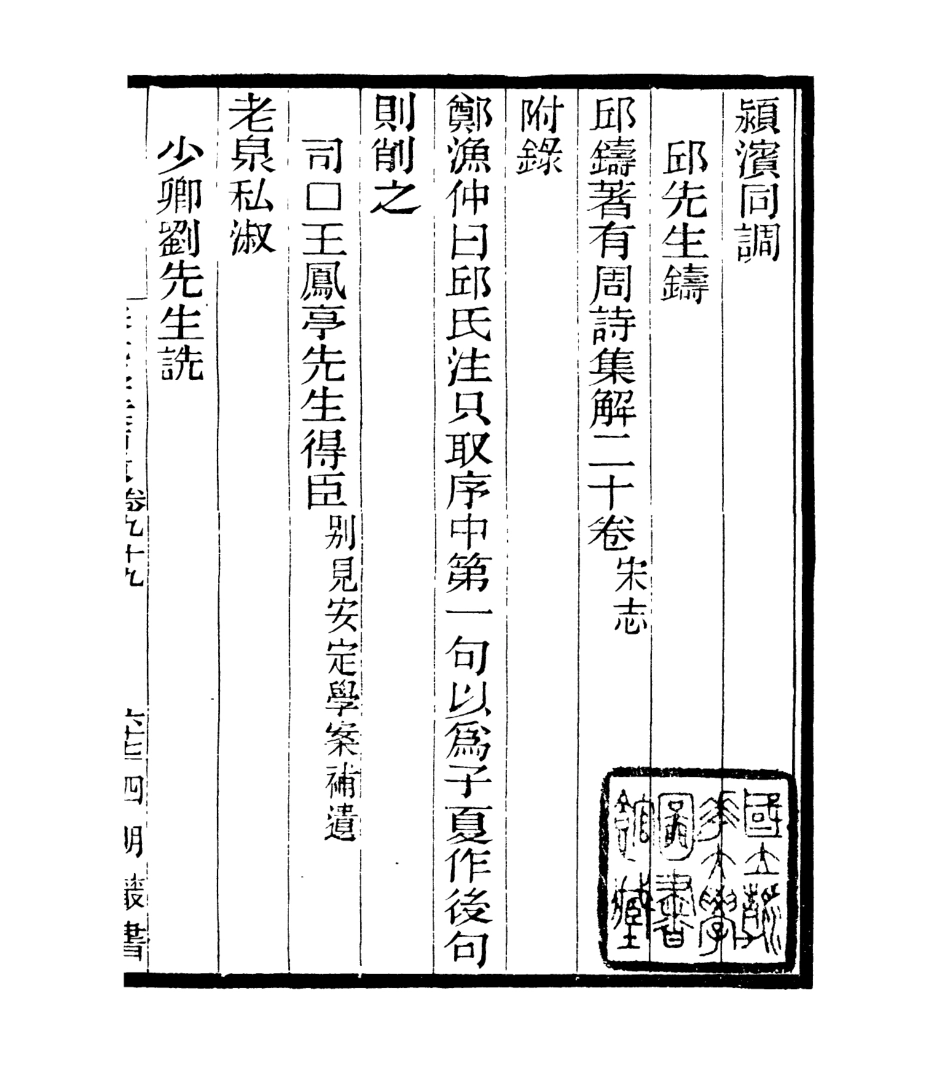 潁濱同調
邱先生鑄
邱鑄著有周詩集解二十卷宋志
附錄
鄭漁仲曰邱氏注只取序中第一句以爲子夏作後句
則削之
司□王鳳亭先生得臣別見安定學案補遺
老泉私淑
少卿劉先生詵
卷九十九
六十七四明叢書
國立清華大學圖書館藏